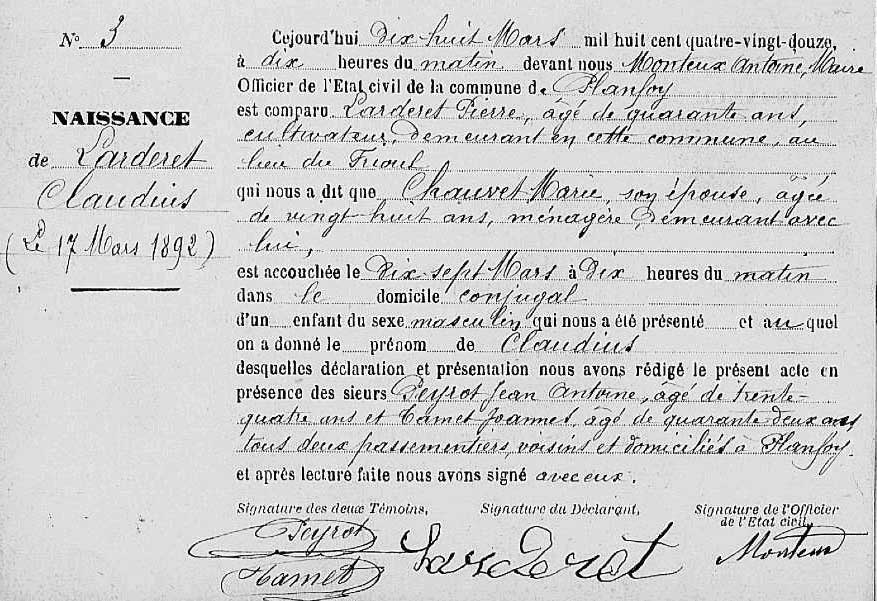 N° 3
NAISSANCE
de Larderet
Claudius
(Le 17 Mars 1892)
Cejourd'hui dix-huit Mars mil huit cent quatre-vingt-douze,
à dix heures du matin devant nous Monteux Antoine, Maire
Officier de l'Etat civil de la commune de Planfoy
est comparu Larderet Pierre, âgé de quarante ans,
cultivateur, demeurant en cette commune, au
lieu du Trioul
qui nous a dit que Chauvet Marie, son épouse, âgée
de vingt-huit ans, ménagère, demeurant avec
lui,
est accouchée le dix-sept Mars à dix heures du matin
dans le domicile conjugal
d'un enfant du sexe masculin qui nous a été présenté et au quel
on a donné le prénom de Claudius
desquelles déclaration et présentation nous avons rédigé le présent acte en
présence des sieurs Peyrot Jean Antoine, âgé de trente-
quatre ans et Camet Joannet, âgé de quarante-deux ans
tous deux passementiers, voisins et domiciliés à Planfoy.
et après lecture faite nous avons signé avec eux.
Signature des deux Témoins,
Signature du Déclarant,
Signature de l'Officier
de l'Etat civil,
Peyrot
Larderet
Monteux
Camet